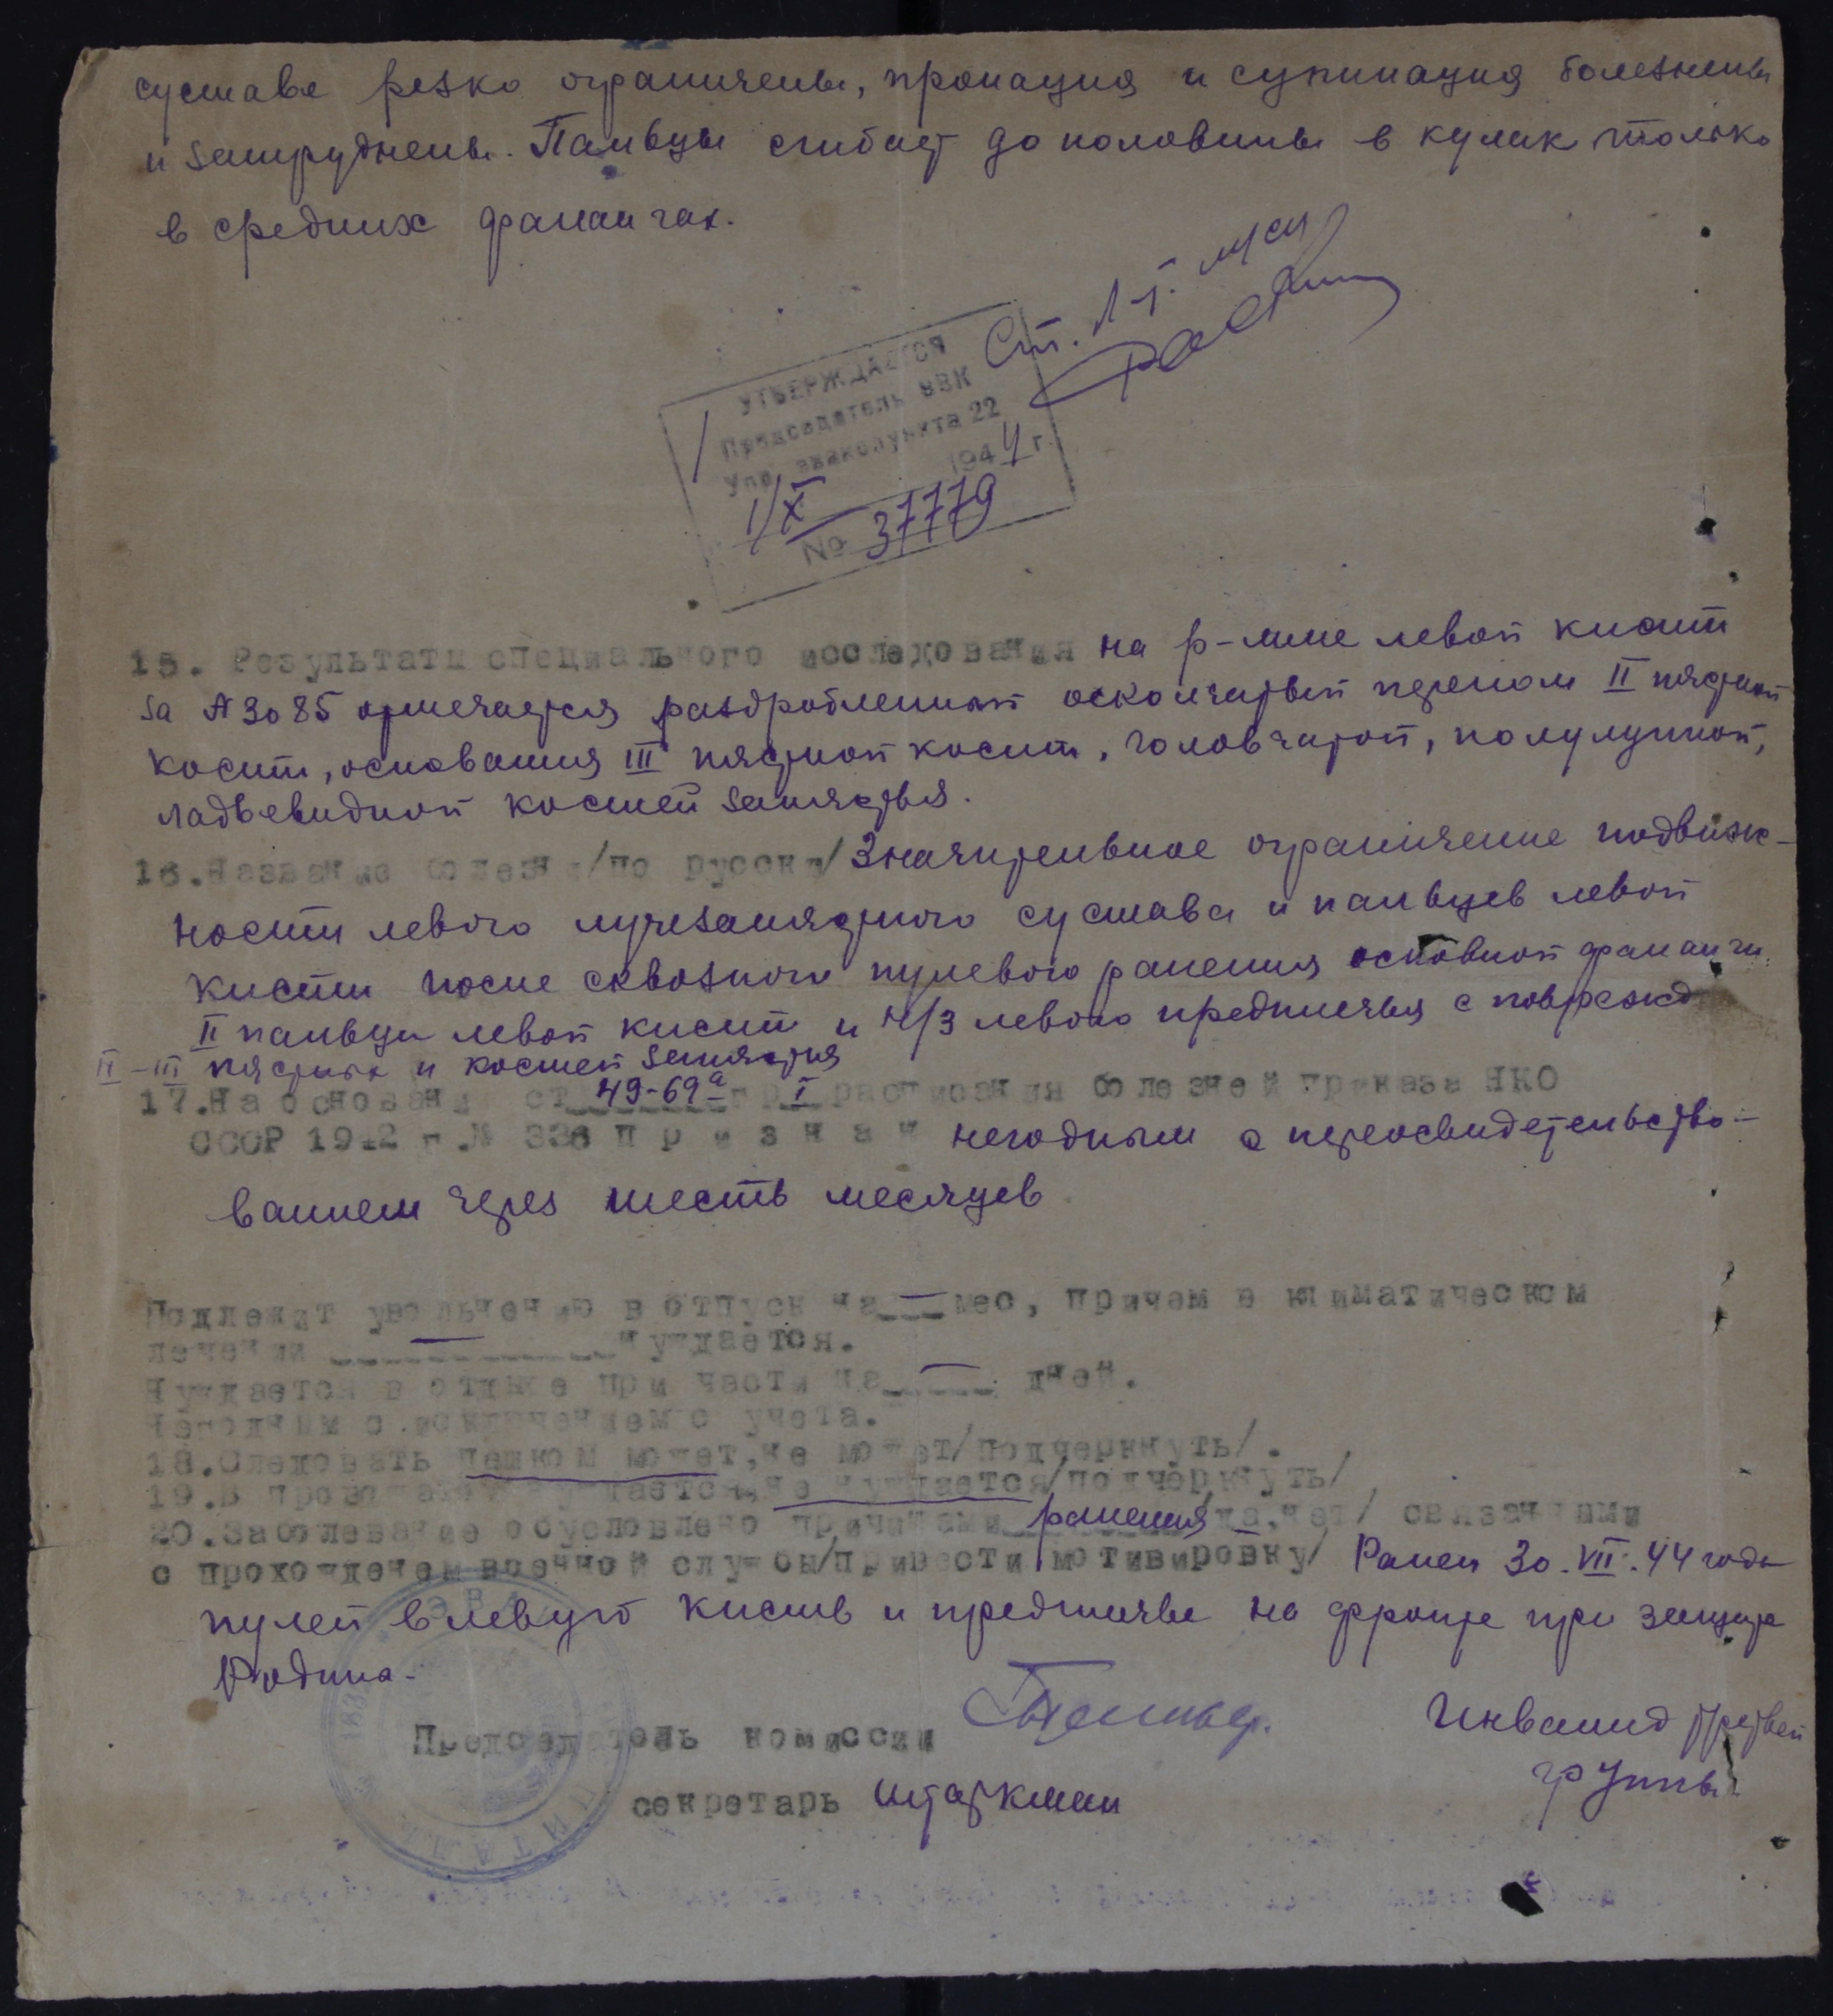 суставе резко ограничены, пронация и супинация болезнены
и затруднены. Пальцы сгибает до половины в кулак только
в средних фалангах.
Ст. л-т. м/сл
УТВЕРЖДАЕТСЯ
Председатель ВВК
Упр. эвакопункта 22
1/X 1944 г.
№ 37779
15. Результаты специального исследования на р-мме левой кисти
за № 3085 отмечается раздробленный оскольчатый перелом II пястной
кости, основания III пястной кости, головчатой, полулунной,
ладьевидной костей запястья.
16. Название болезни /по русски/ Значительное ограничение подвиж-
ности левого лучезапястного сустава и пальцев левой
кисти после сквозного пулевого ранения основной фаланги
II пальца левой кисти и н/3 левого предплечья с поврежд
II-III пястных и костей запястья
17. На основании ст 49-69а гр I расписания болезней приказа НКО
СССР 1942 г. № 336 п р и з н а н негодным с переосвидетельство-
ванием через шесть месяцев
Подлежит увольнению в отпуск на — мес, причем в климатическом
лечении — нуждается.
Нуждается в отдыхе при части на — дней.
Негодным с исключением с учета.
18. Следовать пешком может, не может/подчеркнуть/.
19. В провожатом нуждается, не нуждается/подчеркнуть/
20. Заболевание обусловлено причинами ранения /да, нет/ связанными
с прохождением военной службы/привести мотивировку/ Ранен 30.VII.44 года
пулей в левую кисть и предплечье на фронте при защите
Родины.
Председатель комиссии
Инвалид третьей
группы.
секретарь